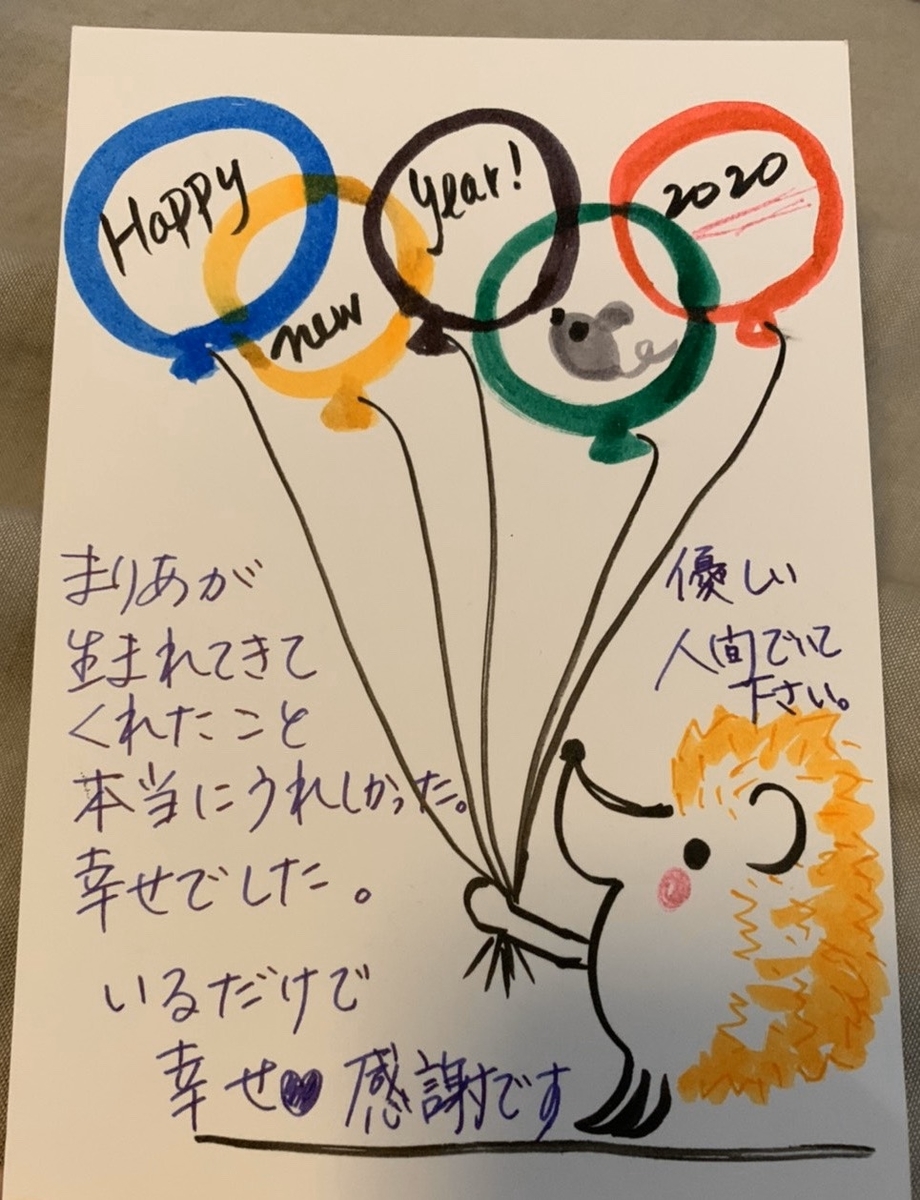 Happy
new
year!
2020
まりあが
生まれてきて
くれたこと
本当にうれしかった。
幸せでした。
いるだけで
幸せ♥感謝です
優しい
人間でいて
下さい。